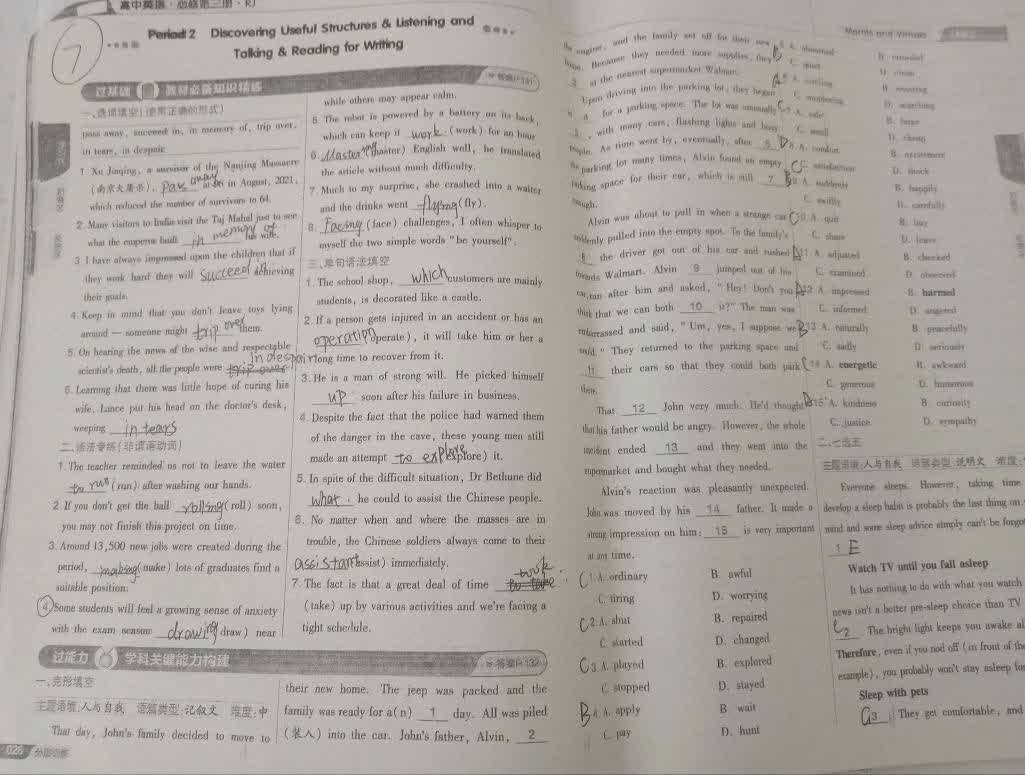 高中英语·必修第三册·RJ
7
Period 2 Discovering Useful Structures & Listening and
Talking & Reading for Writing
过基础 教材必备知识精练
答案P131
一、选词填空(使用正确的形式)
pass away, succeed in, in memory of, trip over,
in tears, in despair
1. Xu Jiaqing, a survivor of the Nanjing Massacre
(南京大屠杀), pas away at in August, 2021,
which reduced the number of survivors to 64.
2. Many visitors to India visit the Taj Mahal just to see
what the emperor built in memory of his wife.
3. I have always impressed upon the children that if
they work hard they will succeed in achieving
their goals.
4. Keep in mind that you don't leave toys lying
around — someone might trip over them.
5. On hearing the news of the wise and respectable
scientist's death, all the people were in despair
6. Learning that there was little hope of curing his
wife, Lance put his head on the doctor's desk,
weeping in tears
二、语法专练(非谓语动词)
1. The teacher reminded us not to leave the water
to run (run) after washing our hands.
2. If you don't get the ball rolling (roll) soon,
you may not finish this project on time.
3. Around 13,500 new jobs were created during the
period, making (make) lots of graduates find a
suitable position.
4. Some students will feel a growing sense of anxiety
with the exam season drawing (draw) near
while others may appear calm.
5. The robot is powered by a battery on its back,
which can keep it work (work) for an hour
6. Mastering (master) English well, he translated
the article without much difficulty.
7. Much to my surprise, she crashed into a waiter
and the drinks went flying (fly).
8. Facing (face) challenges, I often whisper to
myself the two simple words "be yourself".
三、单句语法填空
1. The school shop, which customers are mainly
students, is decorated like a castle.
2. If a person gets injured in an accident or has an
operation (operate), it will take him or her a
long time to recover from it.
3. He is a man of strong will. He picked himself
up soon after his failure in business.
4. Despite the fact that the police had warned them
of the danger in the cave, these young men still
made an attempt to explore (explore) it.
5. In spite of the difficult situation, Dr Bethune did
what he could to assist the Chinese people.
6. No matter when and where the masses are in
trouble, the Chinese soldiers always come to their
assistant (assist) immediately.
7. The fact is that a great deal of time took
(take) up by various activities and we're facing a
tight schedule.
过能力 学科关键能力构建
答案P132
一、完形填空
主题语境:人与自我 语篇类型:记叙文 难度:中
That day, John's family decided to move to
their new home. The jeep was packed and the
family was ready for a(n) 1 day. All was piled
(装入) into the car. John's father, Alvin, 2
026
分层训练
the engine, and the family set off for their new
home. Because they needed more supplies, they
3 at the nearest supermarket Walmart.
Upon driving into the parking lot, they began
4 for a parking space. The lot was unusually
5 , with many cars, flashing lights and busy
people. As time went by, eventually, after 6
the parking lot many times, Alvin found an empty
parking space for their car, which is still 7
enough.
Alvin was about to pull in when a strange car
suddenly pulled into the empty spot. To the family's
8 the driver got out of his car and rushed
towards Walmart. Alvin 9 jumped out of his
car, ran after him and asked, "Hey! Don't you
think that we can both 10 it?" The man was
embarrassed and said, "Um, yes, I suppose we
could." They returned to the parking space and
11 their cars so that they could both park
there.
That 12 John very much. He'd thought
that his father would be angry. However, the whole
incident ended 13 and they went into the
supermarket and bought what they needed.
Alvin's reaction was pleasantly unexpected.
John was moved by his 14 father. It made a
strong impression on him; 15 is very important
at any time.
C 1. A. ordinary B. awful
C. tiring D. worrying
C 2. A. shut B. repaired
C. started D. changed
C 3. A. played B. explored
C. stopped D. stayed
B 4. A. apply B. wait
C. pay D. hunt
Morals and Virtues
B. crowded
C. quiet D. clean
A 6. A. circling B. covering
C. numbering D. searching
C 7. A. safe B. large
C. small D. cheap
8. A. comfort B. excitement
C. satisfaction D. shock
9. A. suddenly B. happily
C. swiftly D. carefully
C 10. A. quit B. buy
C. share D. leave
11. A. adjusted B. checked
C. examined D. observed
12. A. impressed B. harmed
C. informed D. angered
B 13. A. naturally B. peacefully
C. sadly D. seriously
C 14. A. energetic B. awkward
C. generous D. humorous
15. A. kindness B. curiosity
C. justice D. sympathy
二、七选五
主题语境:人与自我 语篇类型:说明文 难度:
Everyone sleeps. However, taking time
develop a sleep habit is probably the last thing on
mind and some sleep advice simply can't be forgot
1 E
Watch TV until you fall asleep
It has nothing to do with what you watch
news isn't a better pre-sleep choice than TV
C 2 . The bright light keeps you awake al
Therefore, even if you nod off (in front of the
example), you probably won't stay asleep for
Sleep with pets
G 3 They get comfortable, and